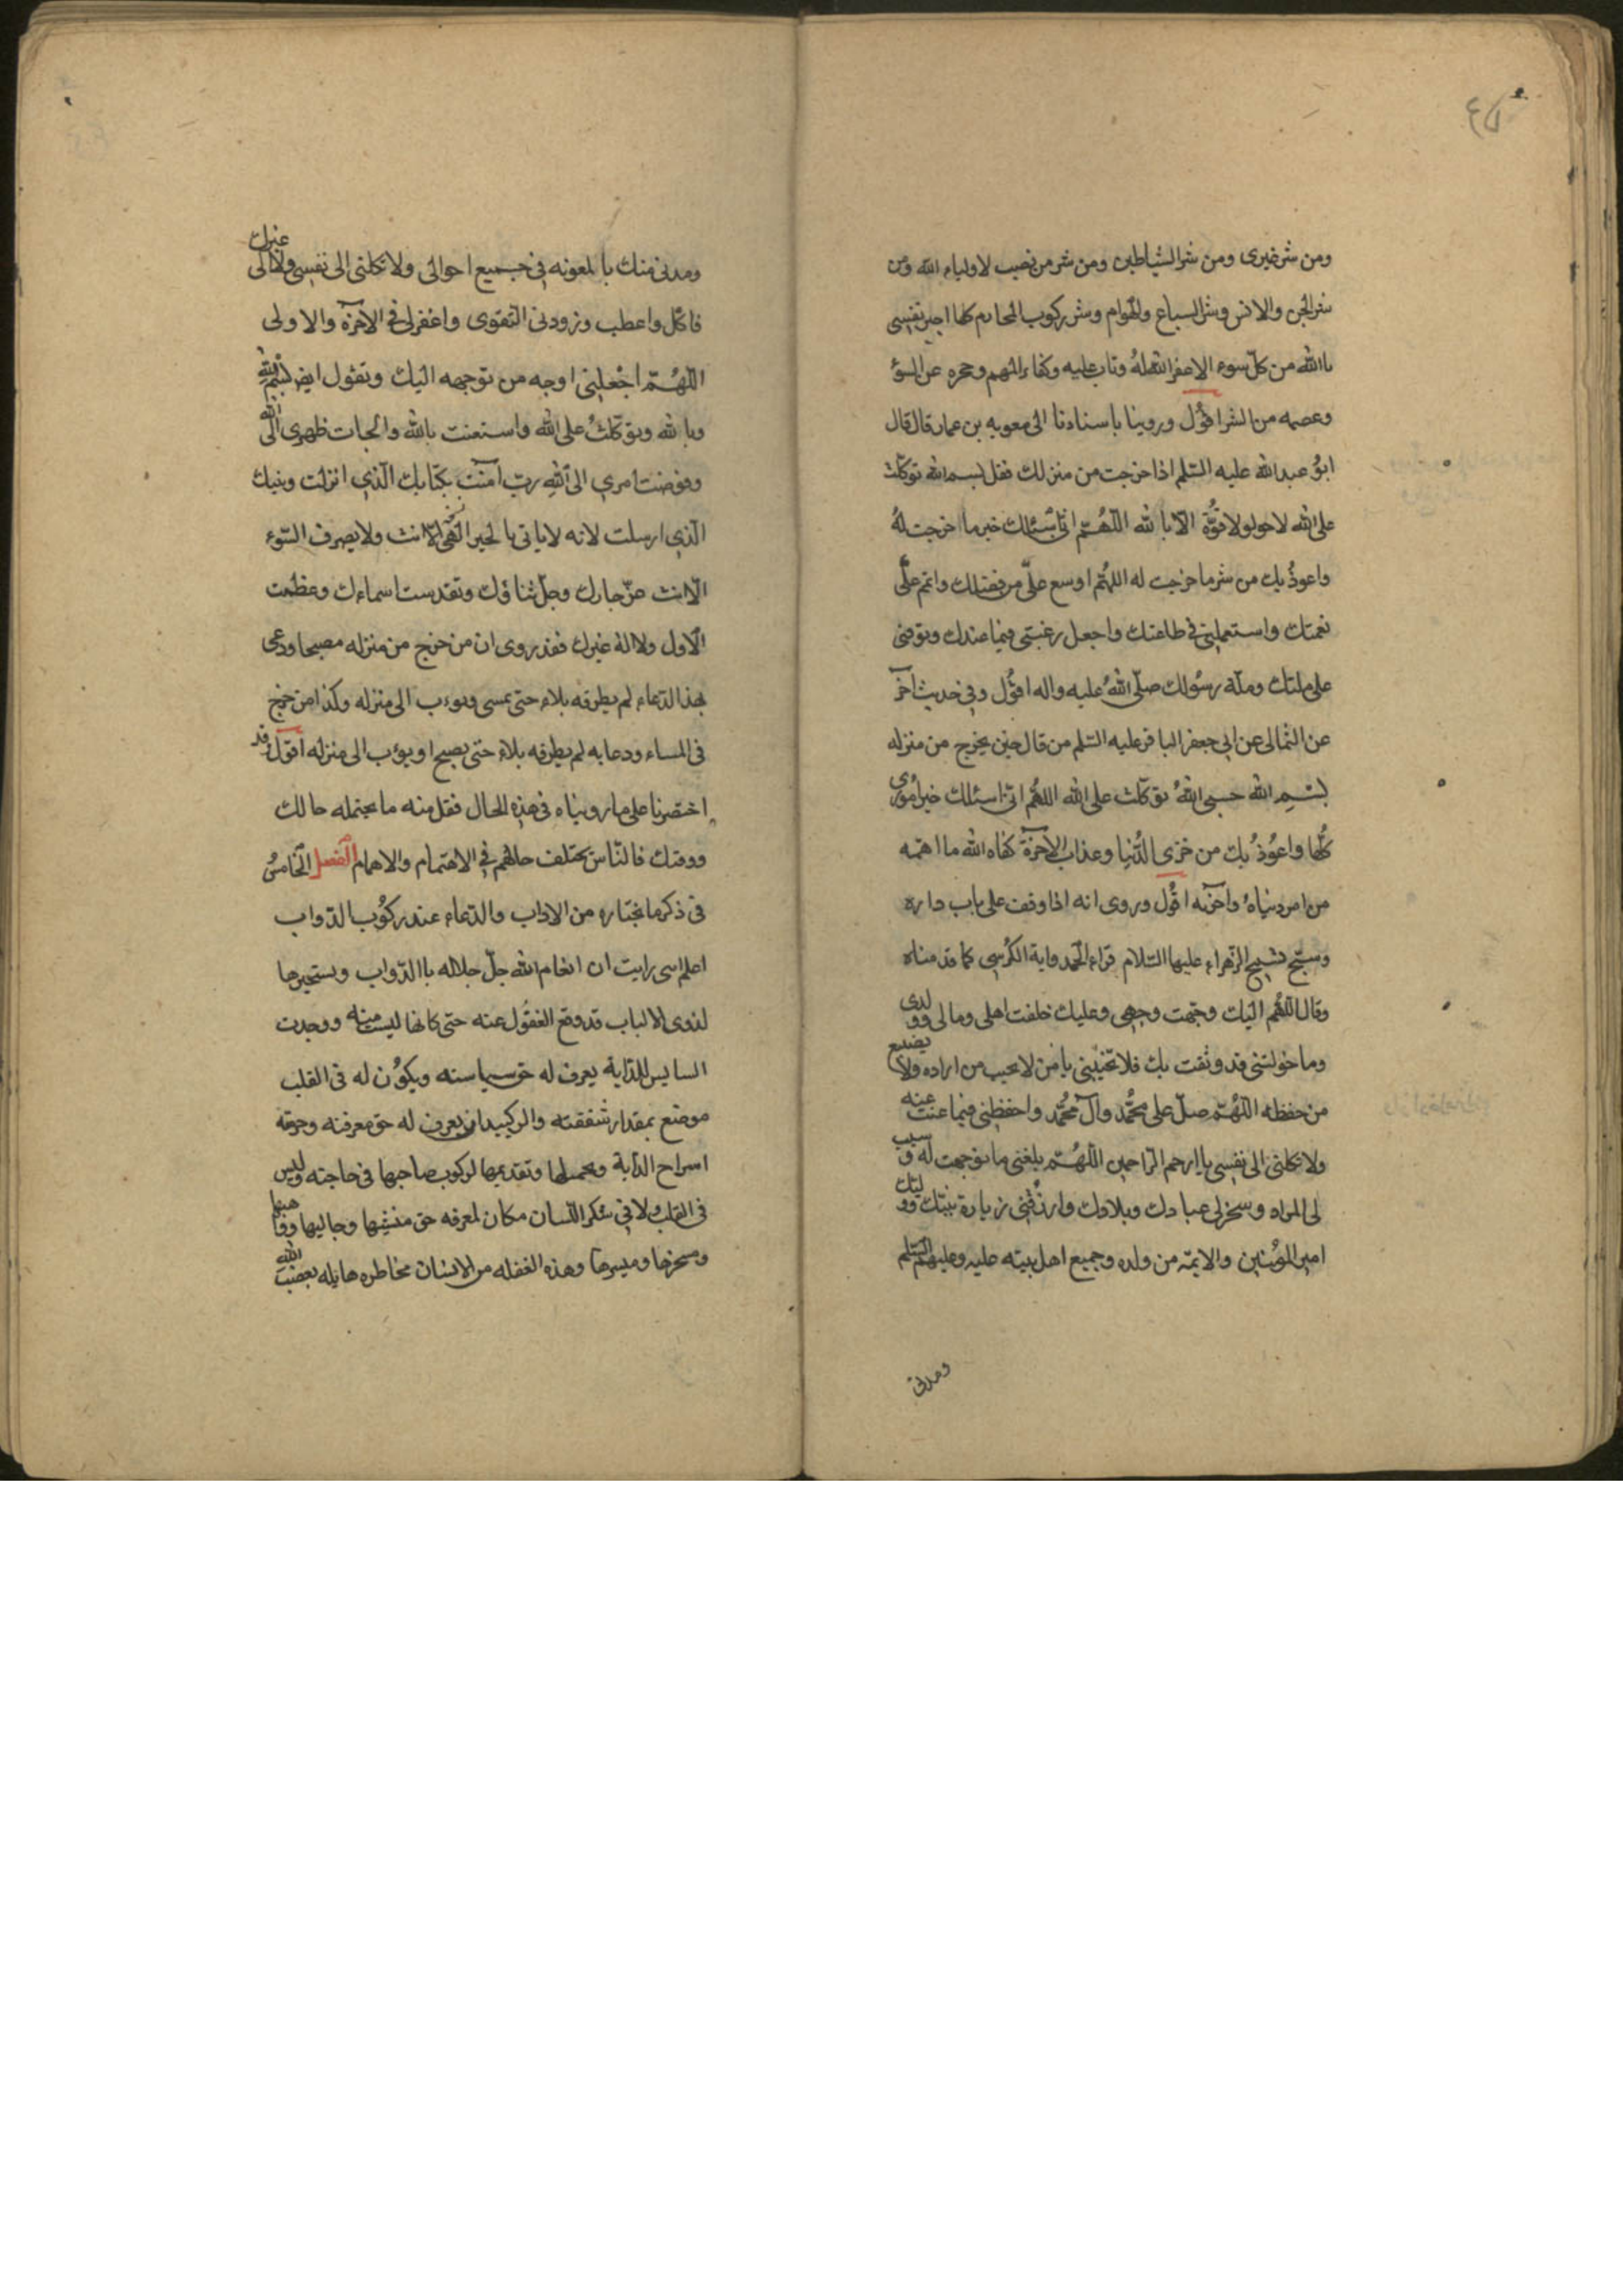 ومن شر غيرى ومن شر الشياطين ومن شر من نصب لاولياء الله ومن
شر الجن والانس وشر السباع والهوام وشر ركوب المحارم كلها اجير نفسى
باالله من كل سوء الا غفر الله لهُ وتاب عليه وكفاء المهم وحجزه عن السوٓء
وعصمه من الشر اقوُل وروينا باسنادنا الى معويه بن عمار قال قال
ابوُ عبد الله عليه السّلم اذا خرجت من منزلك فقل بسم الله توكّلت
على الله لا حول ولا قوُّة الّا بالله اللّهُمّ انّى اسْئلك خير ما خرجت لهُ
واعوذُ بك من شر ما خرجت له اللهُمّ اوسع علىّ من فضلك واتم علىّ
نعمتك واستعملنى فى طاعتك واجعل رغبتى فيما عندك وتوفنى
على ملتك وملّة رسُولك صلّى اللهُ عليه واله اقوُل وفى حديث اخر
عن الثمالى عن ابى جعفر الباقر عليه السّلم من قال حين يخرج من منزله
بسْمِ الله حسبى اللهُ توكّلت على الله اللّهُم انى اسئلك خير اموُرى
كُلّها واعوُذُ بك من خزى الدُّنيا وعذاب الآخرة كفاه الله ما اهمّه
من امر دنياهُ وآخرته اقوُل وروى انه اذا وقف على باب داره
وسبّح تسبيح الزهراء عليها السّلام قراء الحمد واية الكُرسى كما قدمناه
وقال اللّهُم اليك وجّهت وجهى وعليك خلفت اهلى ومالى وولدى
وما خولتنى قد وثقت بك فلا تخيبنى يا من لا يخيب من اراده ولا يضيع
من حفظه اللّهُمّ صلّ على محُمّد وآل محُمّد واحفظنى فيما غبت عنه
ولا تكلنى الى نفسى يا ارحم الرّاحمين اللّهُمّ بلغنى ما توجهت له وسبب
لى المراد وسخر لى عبادك وبلادك وارزُقنى زيارة نبيّك ووليّك
امير الموُمنين والايمّه من ولده وجميع اهل بيته عليه وعليهم السّلم
ومدنى
ومدنى منك بالمعونه فى جميع احوالى ولا تكلنى الى نفسى ولا الى غيرك
فاكلّ واعطب وزودنى التّقوى واغفر لى فى الآخرة والاولى
اللّهُمّ اجْعلنى اوجه من توجه اليك وتقول ايض بسْم الله
وبالله وتوكّلتُ على الله واستعنت بالله والجات ظهرى الى الله
وفوضت امرى الى الله ربّ آمنت بكتابك الّذى انزلت وبنبيك
الّذى ارسلت لانه لا ياتى بالخير الهى الّا انت ولا يصرف السّوء
الّا انت عزّ جارك وجلّ ثناؤك وتقدست اسماءك وعظمت
الاول ولا اله غيرك فقد روى ان من خرج من منزله مصبحا ودعى
بهذا الدّعاء لم يطرقه بلاء حتى يمسى ويوءب الى منزله وكذا من خرج
فى المساء ودعا به لم يطرقه بلاء حتى يصبح او يوءب الى منزله اقوّل وقد
اختصرنا على ما رويناه فى هذه الحال فقل منه ما يحتمله حالك
ووقتك فالنّاس يختلف حالهُم فى الاهتمام والاهمام الفصل الخامسُ
فى ذكر ما نختاره من الاداب والدّعاء عند ركوُب الدّواب
اعلم انى رايت ان انعام الله جلّ جلاله باالدّواب وبتسخيرها
لذوى الالباب قد وقع الغفوُل عنه حتى كانها ليست منه ووجدت
السايس للدّابة يعرف له حق سياسته ويكوُن له فى القلب
موضع بمقدار شفقته والركبدار يعرف له حق معرفته وحرقه
اسراح الدّابة وتحملها وتقديمها لركوب صاحبها فى حاجته وليس
فى القلب ولا فى شكر اللّسان مكان لمعرفه حق منشيها وجاليها وواهبها
ومسخرها ومسيرها وهذه الغفله من الانسان مخاطره هايله بعضب الله